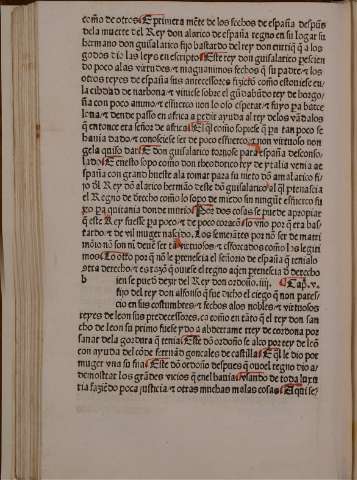 como de otros. E primera mẽte de los fechos de españa despues
dela muerte del Rey don alarico de españa regno en su logar su
hermano don guisalarico fijo bastardo del rey don enriq̃ q̃ a los
godos dio las leys en escripto. Este rey don guisalarico pescien
do poco alas virtudes & magnanimos fechos q̃ su padre & los
otros reyes de españa sus antecessores fiziero como estouiese en
la cibdad de narbona & viniese sobre el gũdabado rey de borgo
ña con poco animo & esfuerço non lo oso esperar & fuyo pa barce
lona & dende passo en africa a pedir ayuda al rey delos vãdalos
q̃ entonce era señor de africa. El q̃l como sopiese q̃ pa tan poco se
hauia dado & conosciese ser de poco esfuerço & non virtuoso non
gela quiso dar. E don guisalarico tornose para españa desconso
lado. E en esto sopo como don theodorico rey de ytalia venia a e
españa con grand hueste ala tomar para su nieto dõ amalarico fi
jo dl Rey dõ alarico hermão deste dõ guisalarico al q̃l ptenescia
el Regno de drecho como lo sopo de miedo sin ningũt esfuerço fu
yo pa quitania donde murio. Por dos cosas se puede apropiar
q̃ este Rey fuesse pa poco & de poco coraçõ lo vno por q̃ era bas
tardo & de vil muger nascido. Los semejantes por nõ ser de matri
mõio nõ son ni deuẽ ser tã virtuosos & efforcados como los legiti
mos. Lo otro por q̃ nõ le ptenescia el señorio de españa q̃ tenia lo
otra derecho & es razõ q̃ ouiese el regno aq̃en ptenescia d derecho
b ien se puede dezir del Rey don ordoño .iiij. Cap. v.
fijo del rey don alfonso q̃ fue dicho el ciego q̃ non pares
cio en sus costumbres & fechos alos nobles & virtuosos
reyes de leon sus predecessores. ca como en tãto q̃ el rey don san
cho de leon su primo fuese ydo a abderrame rrey de cordoua por
sanar dela gordura q̃ tenia. Este dõ ordoño se alço por rey de leõ
con ayuda del cõde fernãd gonçales de castilla. E q̃l le dio por
muger vna su fija. Este dõ ordoño despues q̃ ouo el regno dio a
demostrar los grãdes vicios q̃ en el hauia. vsando de toda luxu
ria fazi̇ẽdo poca justicia & otras muchas malas cosas. El qui se